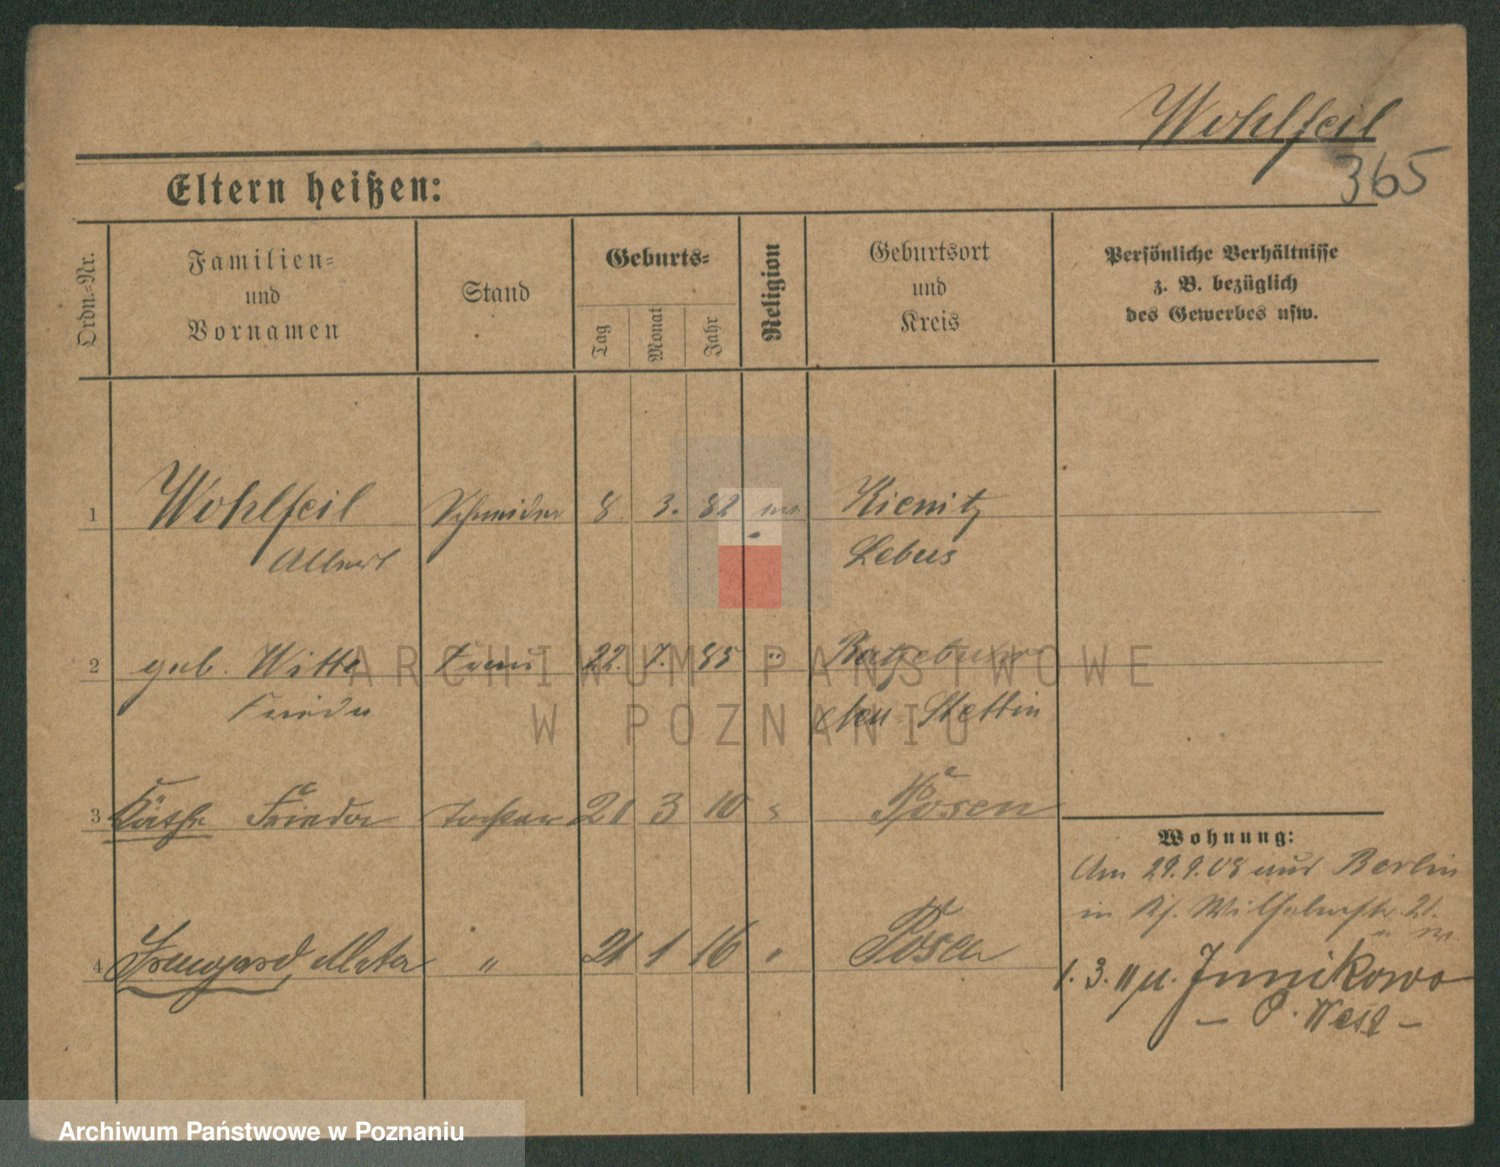 Wohlfeil
365
Eltern heißen:
Ordn.-Nr.
Familien-
und
Vornamen
Stand
Geburts-
Tag
Monat
Jahr
Religion
Geburtsort
und
Kreis
Persönliche Verhältnisse
z. B. bezüglich
des Gewerbes usw.
1 Wohlfeil Schneider 8. 3. 82 Kienitz
Albert Lebus
2 geb. Witte Frau 22. 7. 85 "
Frieda Stettin
3 Käthe Frieda Tochter 21 3 10 " Posen
Wohnung:
Am 29.9.08 aus Berlin
in Wilhelmstr. 21.
4 Irmgard Meta " 21 1 16 " Posen
1. 3. 11 Junikowo
- P. West -
ARCHIWUM PAŃSTWOWE
W POZNANIU
Archiwum Państwowe w Poznaniu